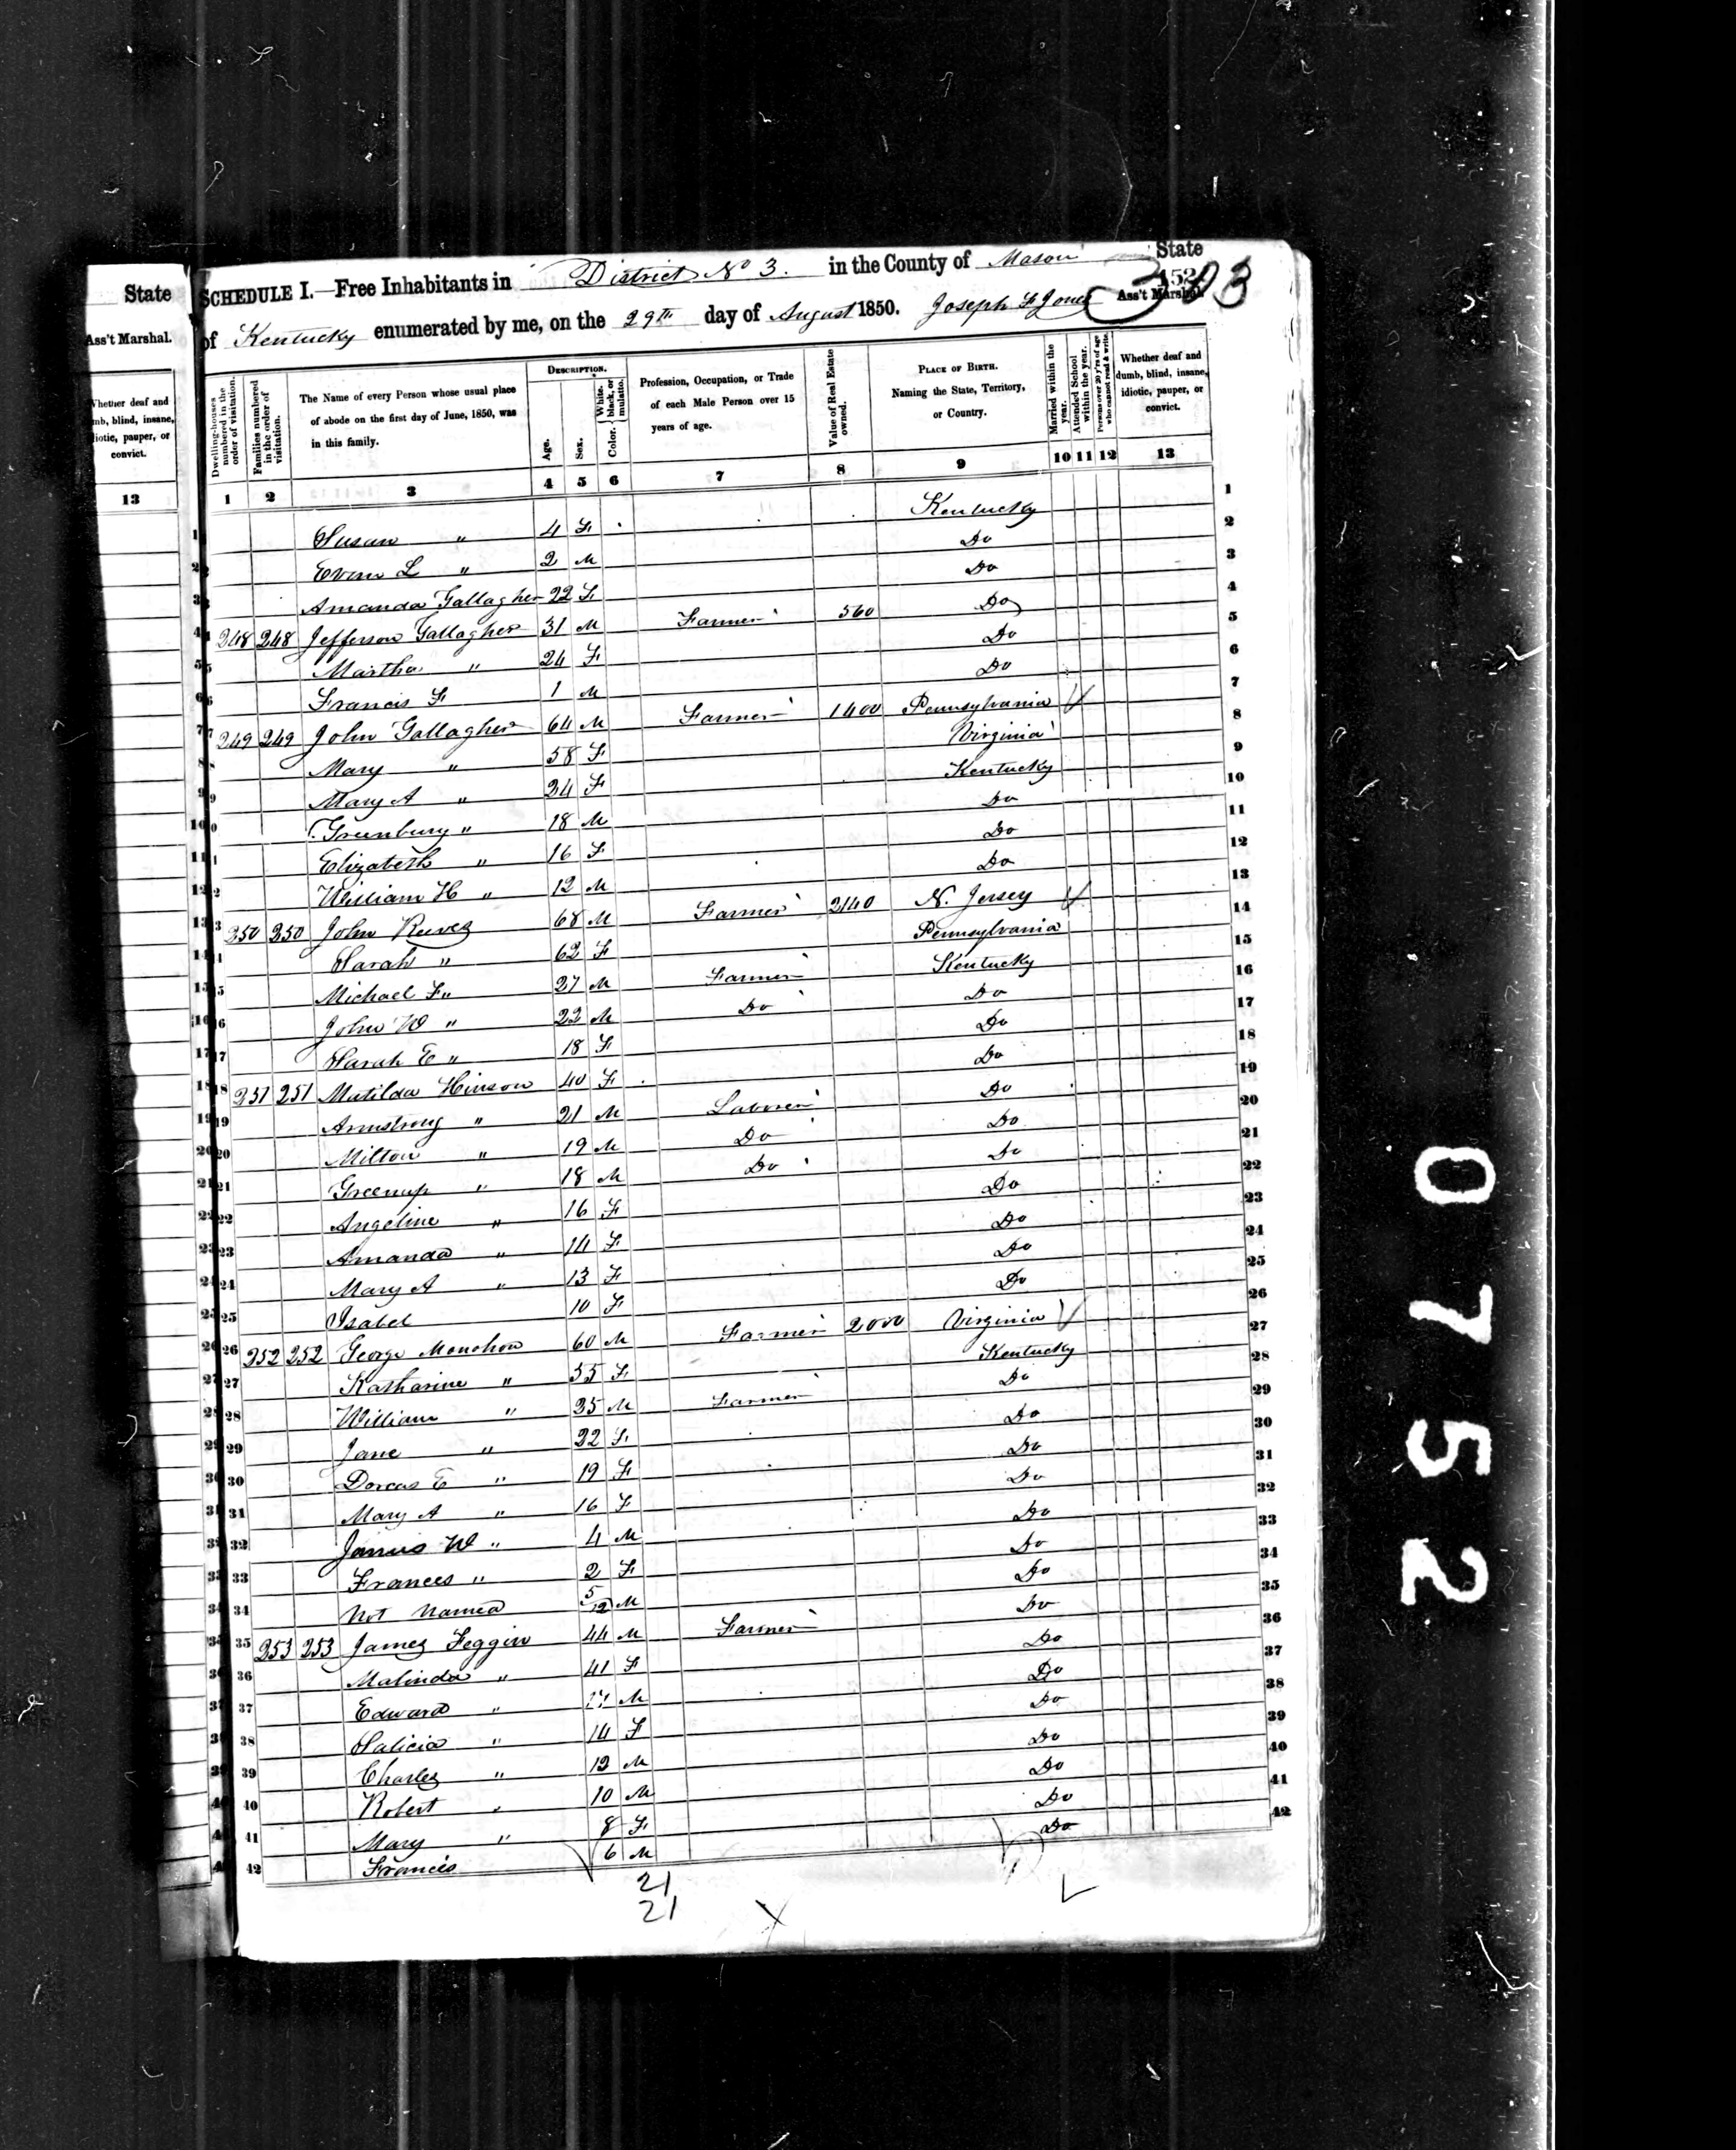 State
Ass't Marshal.
Whether deaf and
dumb, blind, insane,
idiotic, pauper, or
convict.
13
SCHEDULE I.—Free Inhabitants in District No 3. in the County of Mason State
of Kentucky enumerated by me, on the 29th day of August 1850. Joseph F Jones Ass't Marshal.
152
393
Dwelling-houses numbered in the order of visitation.
Families numbered in the order of visitation.
The Name of every Person whose usual place of abode on the first day of June, 1850, was in this family.
DESCRIPTION.
Age.
Sex.
Color. White, black, or mulatto.
Profession, Occupation, or Trade of each Male Person over 15 years of age.
Value of Real Estate owned.
PLACE OF BIRTH. Naming the State, Territory, or Country.
Married within the year.
Attended School within the year.
Persons over 20 y'rs of age who cannot read & write.
Whether deaf and dumb, blind, insane, idiotic, pauper, or convict.
1 2 3 4 5 6 7 8 9 10 11 12 13
1 Susan " 4 F Kentucky 1
2 Evan L " 2 M Do 2
3 Amanda Gallagher 22 F Do 3
4 248 248 Jefferson Gallagher 31 M Farmer 560 Do 4
5 Martha " 24 F Do 5
6 Francis F 1 M Do 6
7 249 249 John Gallagher 64 M Farmer 1400 Pennsylvania 7
8 Mary " 58 F Virginia 8
9 Mary A " 24 F Kentucky 9
10 Greenbury " 18 M Do 10
11 Elizabeth " 16 F Do 11
12 William H " 12 M Do 12
13 250 250 John Reeves 68 M Farmer 2140 N. Jersey 13
14 Sarah " 62 F Pennsylvania 14
15 Michael F " 27 M Farmer Kentucky 15
16 John W " 22 M Do Do 16
17 Sarah E " 18 F Do 17
18 251 251 Matilda Hinson 40 F Do 18
19 Armstrong " 21 M Laborer Do 19
20 Milton " 19 M Do Do 20
21 Greenup " 18 M Do Do 21
22 Angeline " 16 F Do 22
23 Amanda " 14 F Do 23
24 Mary A " 13 F Do 24
25 Isabel 10 F Do 25
26 252 252 George Monohon 60 M Farmer 2000 Virginia 26
27 Katharine " 55 F Kentucky 27
28 William " 25 M Farmer Do 28
29 Jane " 22 F Do 29
30 Dorcas E " 19 F Do 30
31 Mary A " 16 F Do 31
32 James W " 4 M Do 32
33 Frances " 2 F Do 33
34 Not Named 5/12 M Do 34
35 253 253 James Feggin 44 M Farmer Do 35
36 Malinda " 41 F Do 36
37 Edward " M Do 37
38 " 14 F Do 38
39 Charles " 12 M Do 39
40 Robert " 10 M Do 40
41 Mary " 8 F Do 41
42 Francis 6 M Do 42
21
21
0752